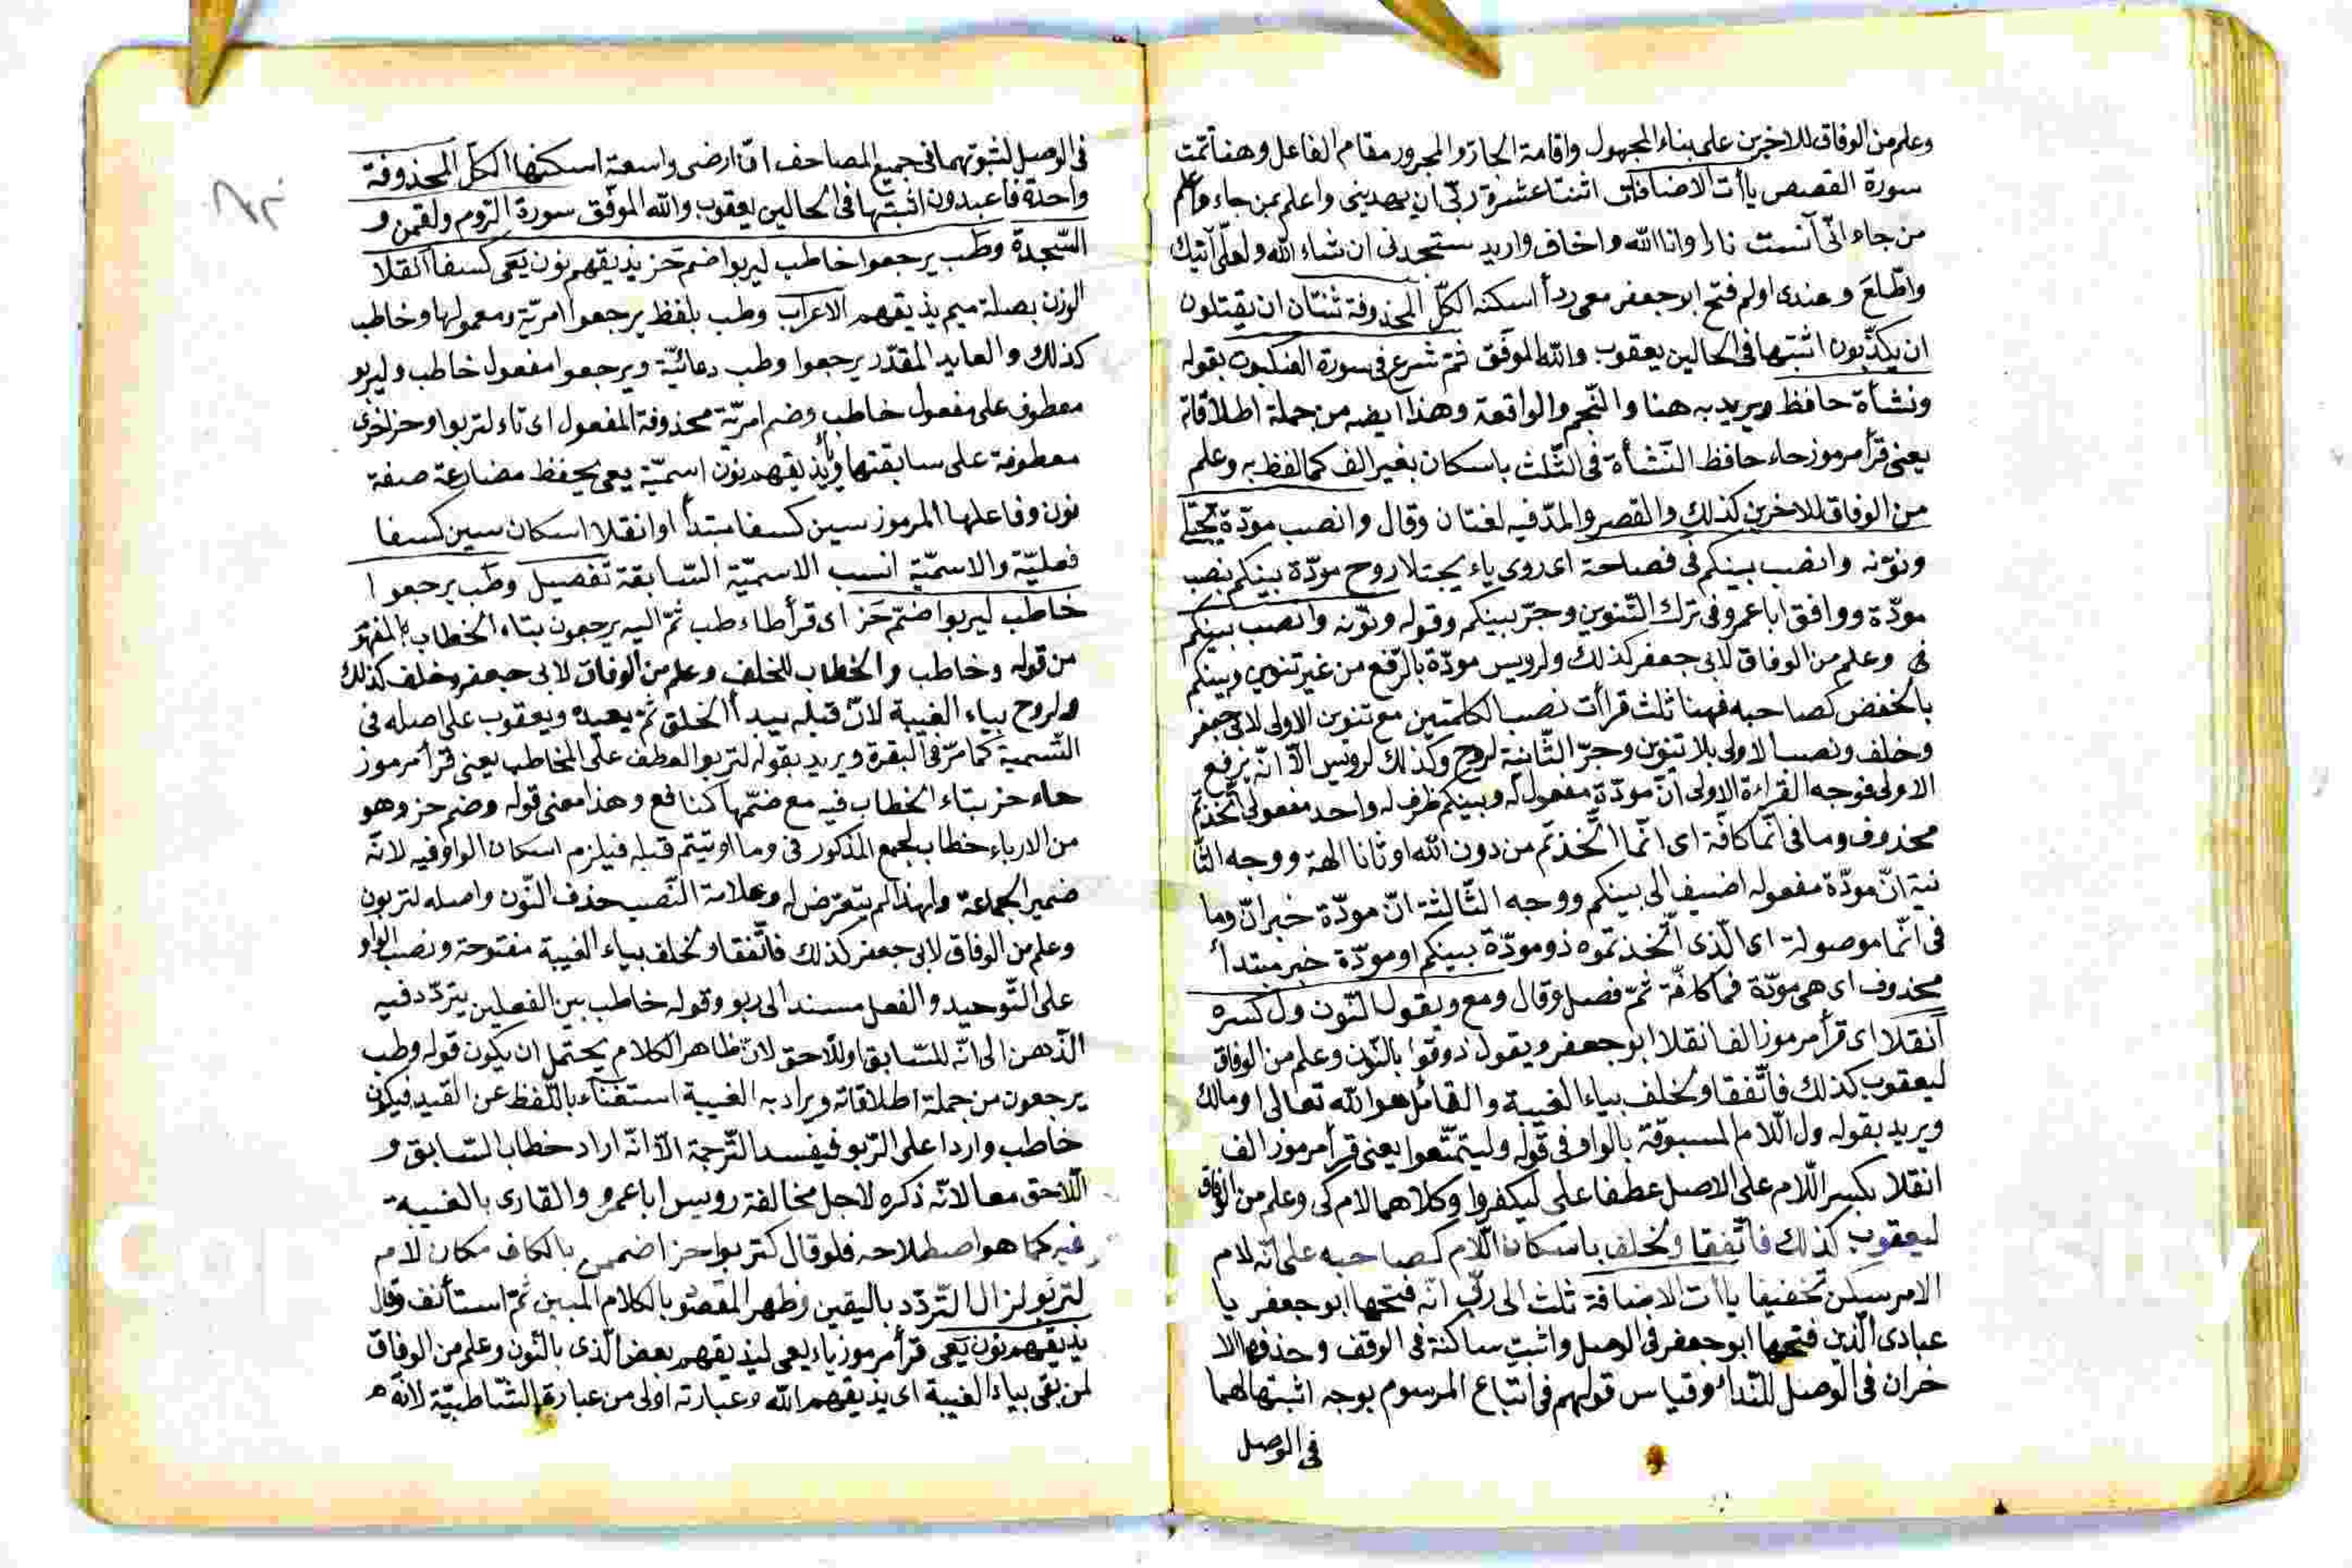 وعلم من الوفاق للاخرين على بناء المجهول واقامة الجار والمجرور مقام الفاعل وهنا تمّت
سورة القصص ياآت الاضافات اثنتا عشرة ربّى ان يهدينى واعلم بمن جاء واعلم
من جاء انّى آنست نارا وانا الله واخاف واريد ستجدنى ان شاء الله ولعلّى آتيك
واطّلع وعندى اولم فتح ابو جعفر معى ردأ اسكنه الكلّ المحذوفة ثنتان ان يقتلون
ان يكذّبون اثبتها فى الحالين يعقوب والله الموفّق ثمّ شرع فى سورة العنكبوت بقوله
ونشأة حافظ ويريد به هنا والنّجم والواقعة وهذا ايضه من جملة اطلاقاته
يعنى قرأ مرموز حاء حافظ النّشأة فى الثّلث باسكان بغير الف كما لفظ به وعلم
من الوفاق للاخرين كذلك والقصر والمدّ فيه لغتان وقال وانصب مودّة يجتلى
ونوّنه وانصب بينكم فى فصاحة اى روى ياء يجتلا روح مودّة بينكم بنصب
مودّة ووافق ابا عمرو فى ترك التّنوين وجرّ بينكم وقوله ونوّنه وانصب بينكم
فى وعلم من الوفاق لابى جعفر كذلك ولرويس مودّة بالرّفع من غير تنوين وبينكم
بالخفض كصاحبه فهنا ثلث قرأت نصب الكلمتين مع تنوين الاولى لابى جعفر
وخلف ونصب الاولى بلا تنوين وجرّ الثّانية لروح وكذلك لرويس الّا انّه يرفع
الاولى فوجه القراءة الاولى انّ مودّة مفعول له وبينكم ظرف له واحد مفعولى اتّخذتم
محذوف وما فى انّما كافّة اى انّما اتّخذتم من دون الله اوثانا الهة ووجه الثّا
نية انّ مودّة مفعوله اضيف الى بينكم ووجه الثّالثة انّ مودّة خبر انّ وما
فى انّما موصولة اى الّذى اتّخذتموه ذو مودّة بينكم او مودّة خبر مبتدأ
محذوف اى هى مودّة فما كافّة ثمّ فصل وقال ومع ويقول النّون ول كسره
انقلا اى قرأ مرموز الف انقلا ابو جعفر ويقول ذوقوا بالنّون وعلم من الوفاق
ليعقوب كذلك فاتّفقا ولخلف بياء الغيبة والقائل هو الله تعالى او مالك
ويريد بقوله ول الّلام المسبوقة بالواو فى قوله وليتمتّعوا يعنى قرأ مرموز الف
انقلا بكسر الّلام على الاصل عطفا على ليكفروا وكلاهما لام كى وعلم من الوفاق
ليعقوب كذلك فاتّفقا ولخلف باسكان الّلام كصاحبه على انّه لام
الامر سكن تخفيفا ياآت الاضافة ثلث الى ربّى انّه فتحها ابو جعفر يا
عبادى الّذين فتحها ابو جعفر فى الوصل واثبت ساكنة فى الوقف وحذفها الا
خران فى الوصل للنّداء وقياس قولهم فى اتباع المرسوم بوجه اثبتها لهما
فى الوصل
فى الوصل لثبوتهما فى جميع المصاحف انّ ارضى واسعة اسكنها الكلّ المحذوفة
واحدة فاعبدون اثبتها فى الحالين يعقوب والله الموفّق سورة الرّوم ولقمن و
السّجدة وطب يرجعوا خاطب ليربوا ضم حز يذيقهم نون يعى كسفا انقلا
الوزن بصلة ميم يذيقهم الاعراب وطب بلفظ يرجعوا امريّة ومعمولها وخاطب
كذلك والعايد المقدّر يرجعوا وطب دعائيّة ويرجعوا مفعول خاطب وليربو
معطوف على مفعول خاطب وضم امريّة محذوفة المفعول اى تاء لتربوا وحز اخرى
معطوفة على سابقتها ويذيقهم نون اسميّة يعى يحفظ مضارعة صفة
نون وفاعلها المرموز سين كسفا مبتدأ او انقلا اسكان سين كسفا
فعليّة والاسميّة انسب الاسميّة السّابقة تفصيل وطب يرجعوا
خاطب ليربوا ضمّ حز اى قرأ طاء طب ثمّ اليه يرجعون بتاء الخطاب المفهو
من قوله وخاطب والخطاب للخلف وعلم من الوفاق لابى جعفر وخلف كذلك
ولروح بياء الغيبة لانّ قبله يبدأ الخلق ثمّ يعيده ويعقوب على اصله فى
التّسمية كما مرّ فى البقرة ويريد بقوله لتربوا العطف على المخاطب يعنى قرأ مرموز
حاء حز بتاء الخطاب فيه مع ضمّها كنافع وهذا معنى قوله وضم حز وهو
من الارباء خطاب لجمع المذكور فى وما اوتيتم قبله فيلزم اسكان الواو فيه لانّه
ضمير الجماعة ولهذا لم يتعرّض له وعلامة النّصب حذف النّون واصله لتربون
وعلم من الوفاق لابى جعفر كذلك فاتّفقا ولخلف بياء الغيبة مفتوحة ونصب الواو
على التّوحيد والفعل مسند الى ربو وقوله خاطب بين الفعلين يتردّد فيه
الذّهن الى انّه للسّابق او للّاحق لانّ ظاهر الكلام يحتمل ان يكون قوله وطب
يرجعون من جملة اطلاقاته ويراد به الغيبة استغناء بالّلفظ عن القيد فيكون
خاطب واردا على الرّبو فيفسد التّرجمة الّا انّه اراد خطاب السّابق و
الّلاحق معا لانّه ذكره لاجل مخالفة رويس ابا عمرو والقارى بالغيبة
فيه كما هو اصطلاحه فلو قال كتربوا حز اضمم بالكاف مكان لام
لتربو لزال التّردّد باليقين وظهر المقصو بالكلام المبين ثمّ استأنف وقال
يذيقهم نون يعى قرأ مرموز ياء يعى ليذيقهم بعض الّذى بالنّون وعلم من الوفاق
لمن بقى بياء الغيبة اى يذيقهم الله وعبارته اولى من عبارة الشّاطبيّة لانّه